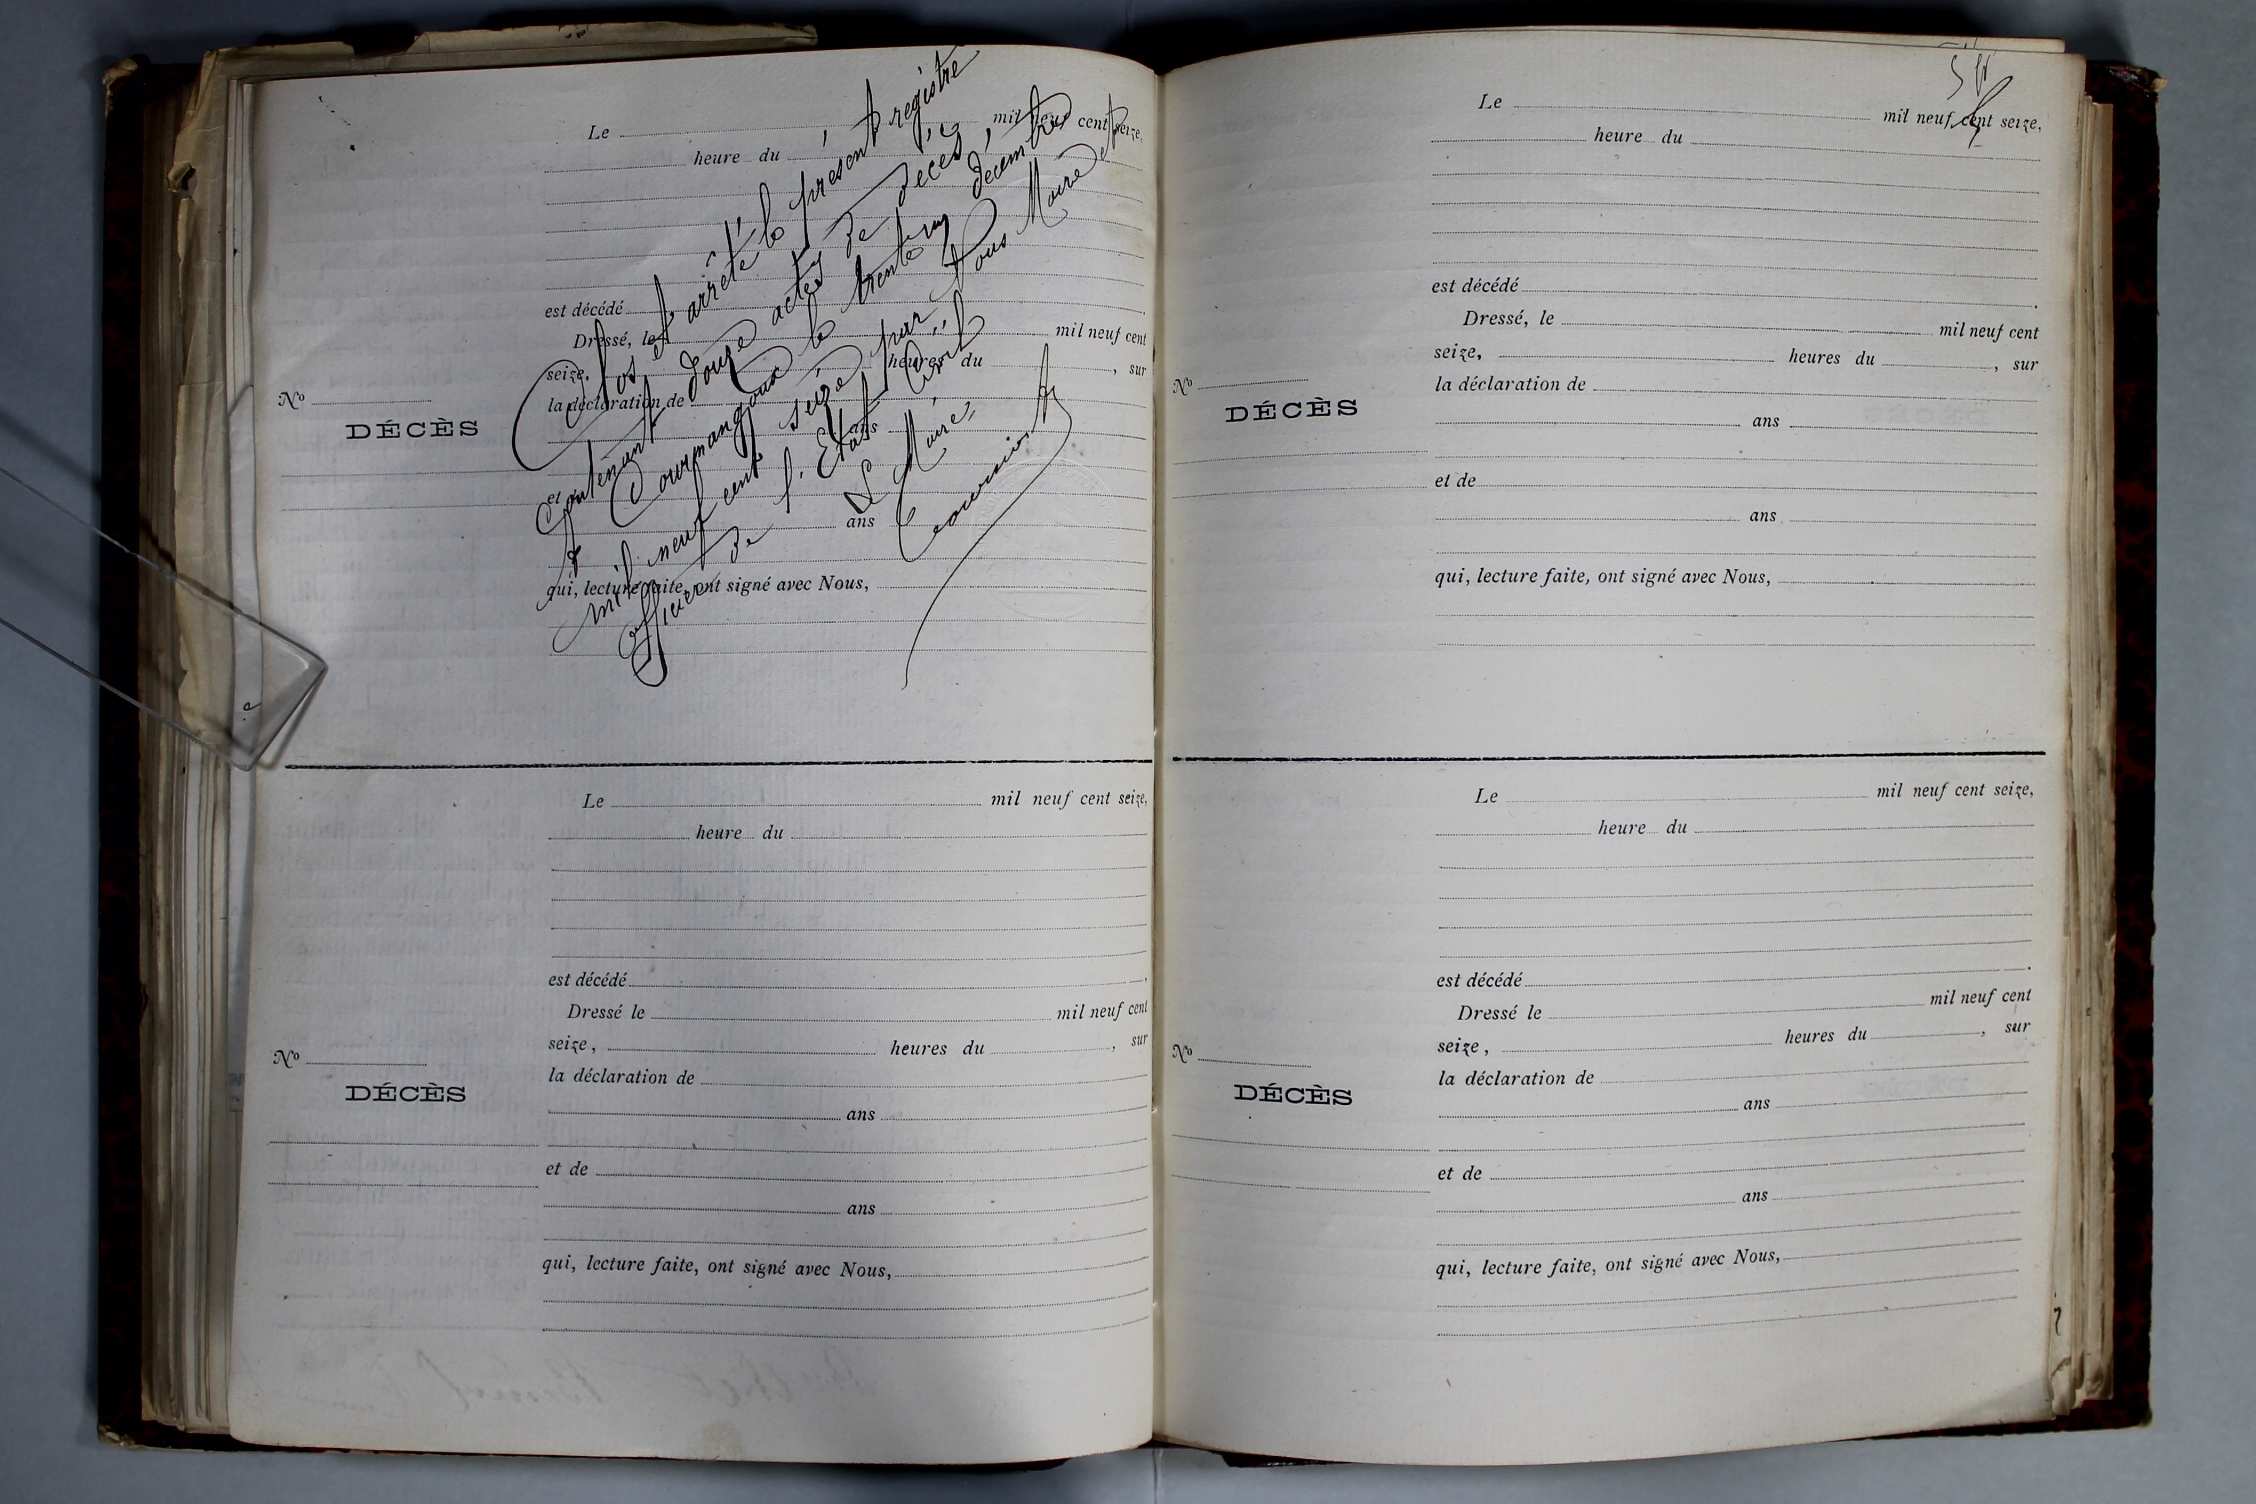 Le mil neuf cent seize,
heure du
est décédé
Dressé, le mil neuf cent
seize, heures du , sur
la déclaration de
ans
et de
ans
qui, lecture faite, ont signé avec Nous,
No
DÉCÈS
Clos et arrêté le présent registre
Contenant douze actes de décès,
à Courmangoux le trente un décembre
mil neuf cent seize par Nous Maire et
officier de l'Etat Civil
Le Maire,
Le mil neuf cent seize,
heure du
est décédé
Dressé le mil neuf cent
seize, heures du , sur
la déclaration de
ans
et de
ans
qui, lecture faite, ont signé avec Nous,
No
DÉCÈS
Le mil neuf cent seize,
heure du
est décédé
Dressé, le mil neuf cent
seize, heures du , sur
la déclaration de
ans
et de
ans
qui, lecture faite, ont signé avec Nous,
No
DÉCÈS
Le mil neuf cent seize,
heure du
est décédé
Dressé le mil neuf cent
seize, heures du , sur
la déclaration de
ans
et de
ans
qui, lecture faite, ont signé avec Nous,
No
DÉCÈS